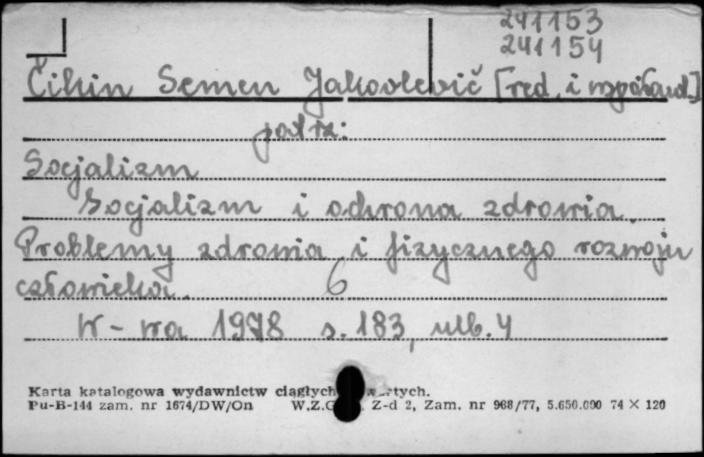 241153
241154
Čikin Semen Jakovlevič [red. i współaut]
patrz:
Socjalizm
Socjalizm i ochrona zdrowia.
Problemy zdrowia i fizycznego rozwoju
człowieka. 6
W-wa 1978 s. 183, nlb. 4
Karta katalogowa wydawnictw ciągłych
Pu-B-144 zam. nr 1674/DW/On W.Z.G. Z-d 2, Zam. nr 968/77, 5.650.000 74 × 120